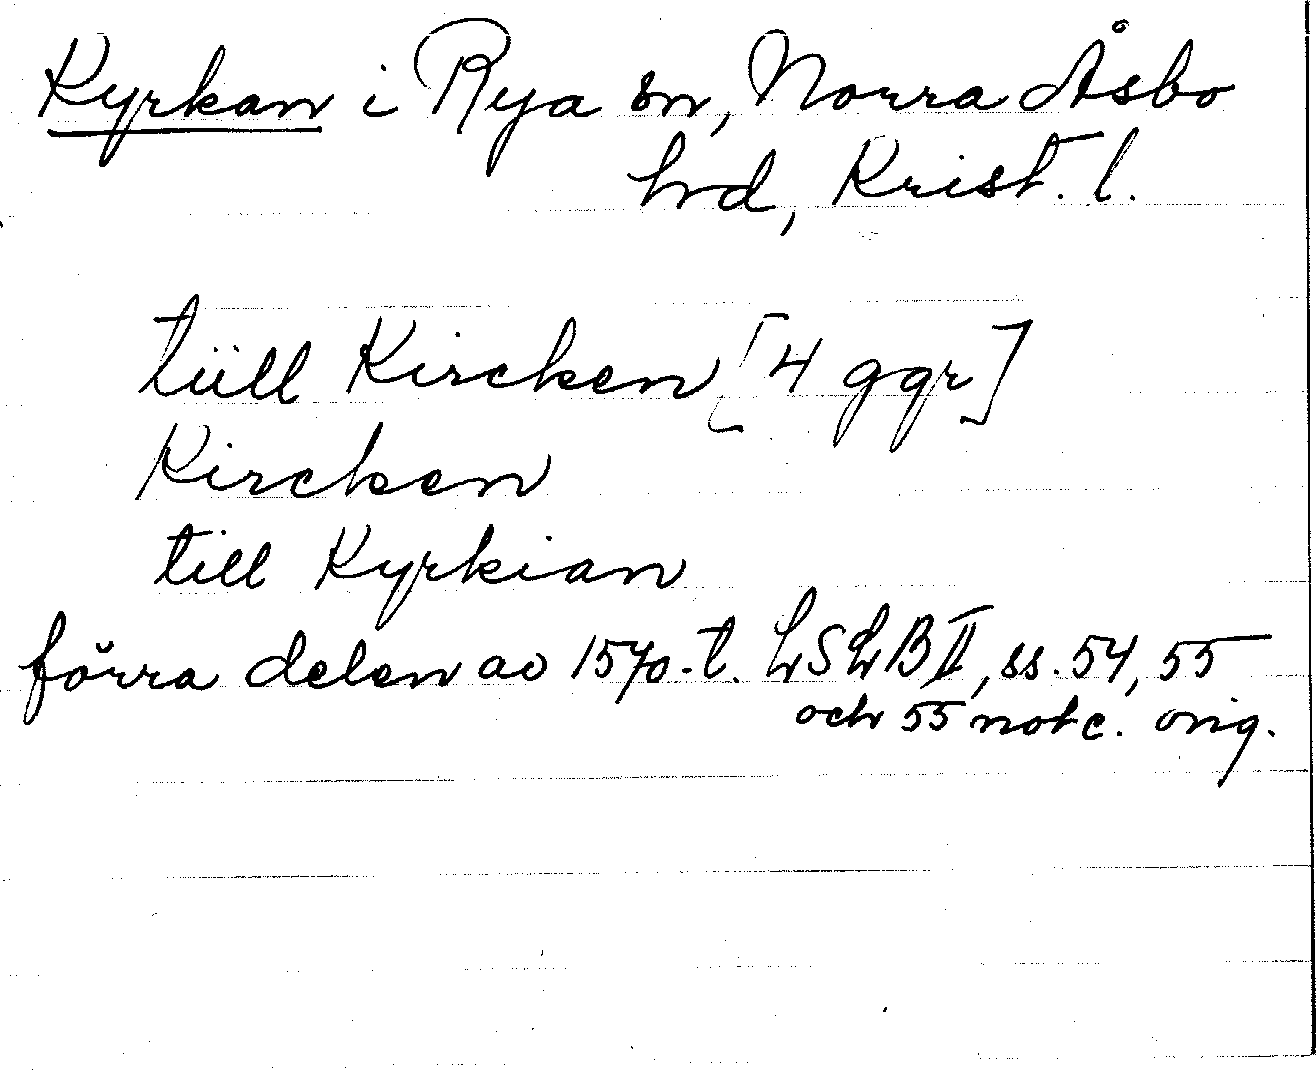 Kyrkan i Rya sn, Norra Åsbo
hd, Krist. l.
tiill Kircken [4 ggr]
Kircken
till Kyrkian
förra delen av 1570-t. LSLB II, ss. 54, 55
och 55 not c. orig.